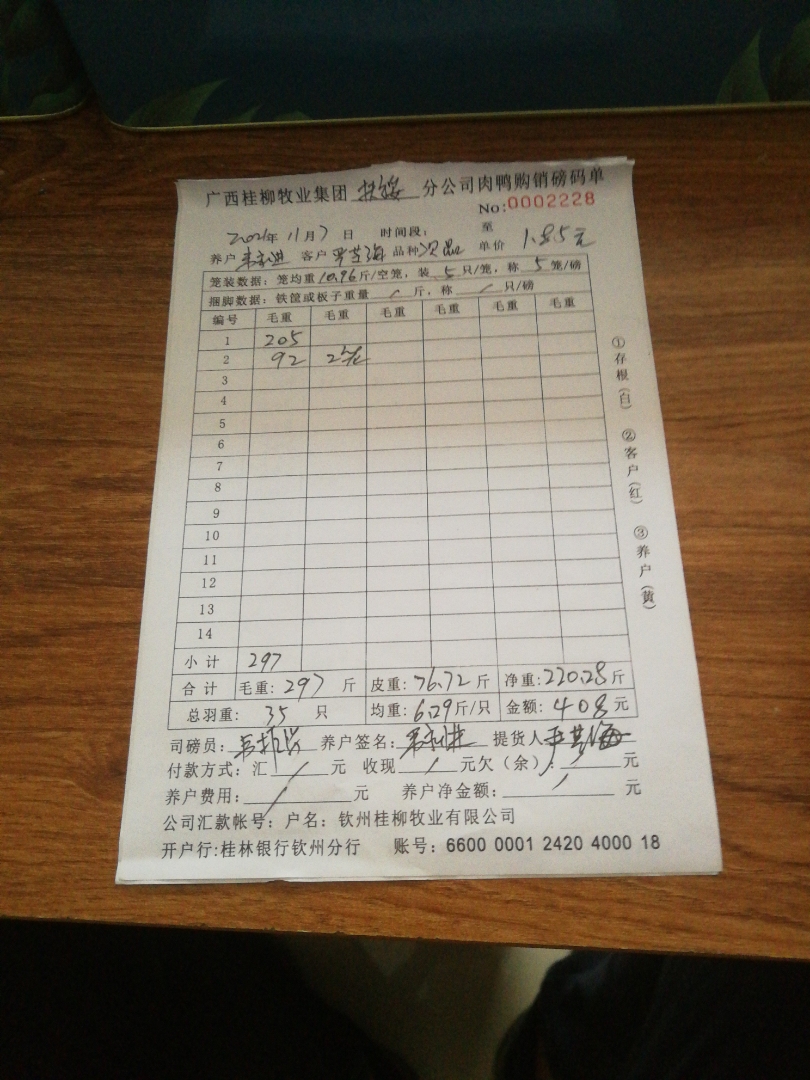 广西桂柳牧业集团 扶绥 分公司肉鸭购销磅码单
No:0002228
2021年 11月 7 日 时间段： 至
养户 客户 品种 次品 单价 1.85元
笼装数据：笼均重 10.96 斤/空笼，装 5 只/笼，称 5 笼/磅
捆脚数据：铁筐或板子重量 / 斤，称 / 只/磅
编号 毛重 毛重 毛重 毛重 毛重 毛重
1 205
2 92 2笼
3
4
5
6
7
8
9
10
11
12
13
14
小计 297
合计 毛重：297 斤 皮重：76.72 斤 净重：220.28 斤
总羽重： 35 只 均重：6.29 斤/只 金额：408 元
司磅员： 养户签名： 提货人
付款方式：汇 / 元 收现 / 元欠（余）： / 元
养户费用： / 元 养户净金额： / 元
公司汇款帐号：户名：钦州桂柳牧业有限公司
开户行:桂林银行钦州分行 账号：6600 0001 2420 4000 18
①存根（白） ②客户（红） ③养户（黄）